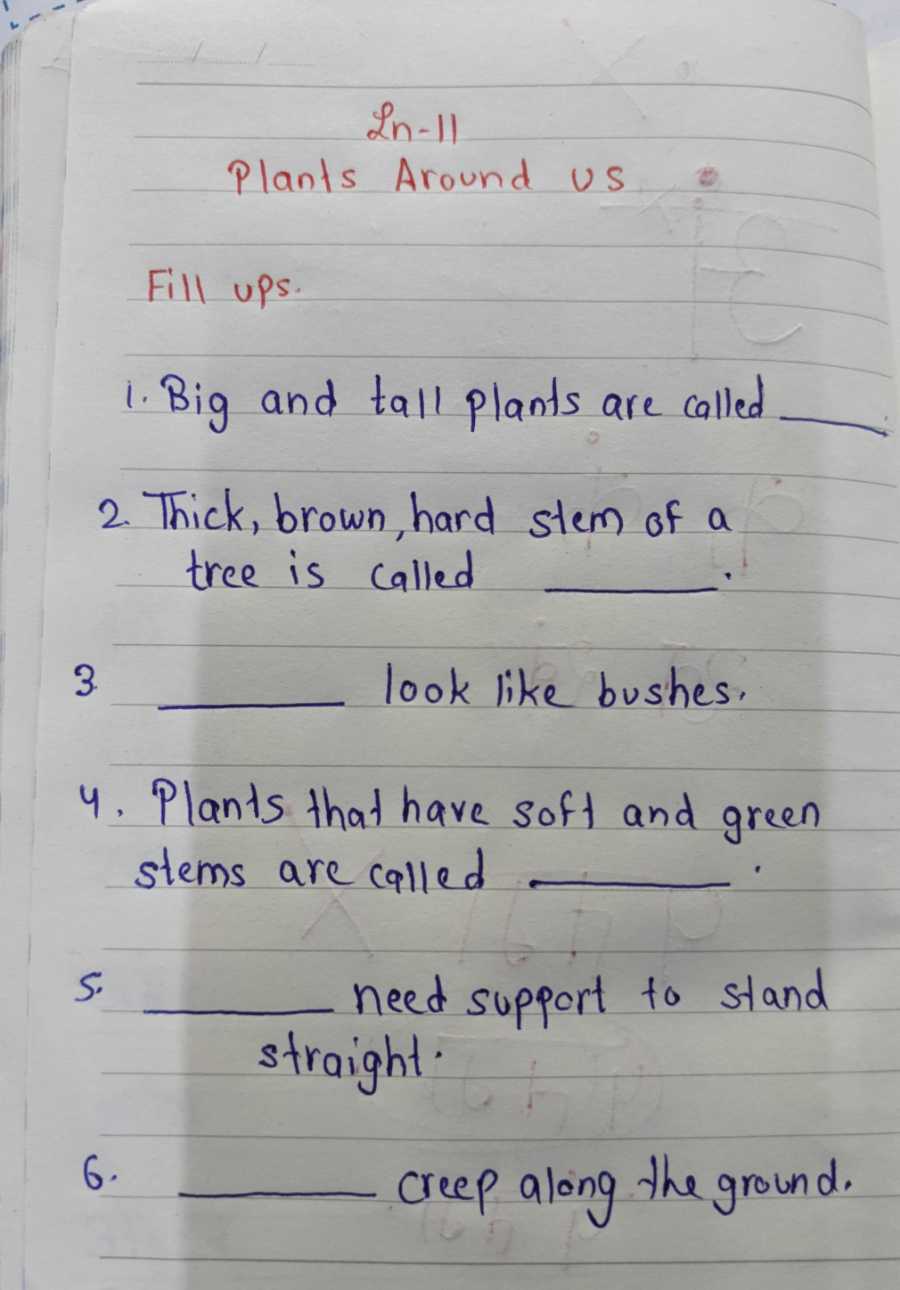 Ln-11
Plants Around us
Fill ups.
1. Big and tall plants are called ______.
2. Thick, brown, hard stem of a
tree is called ______.
3. ______ look like bushes.
4. Plants that have soft and green
stems are called ______.
5. ______ need support to stand
straight.
6. ______ creep along the ground.